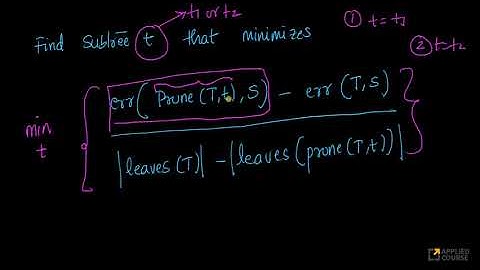 →t1 or t2
Find Subtree t that minimizes
① t=t1
② t=t2
min
t
{ err(Prune(T,t),S) - err(T,S) }
|leaves(T)| - |leaves(prune(T,t))|
APPLIED
COURSE